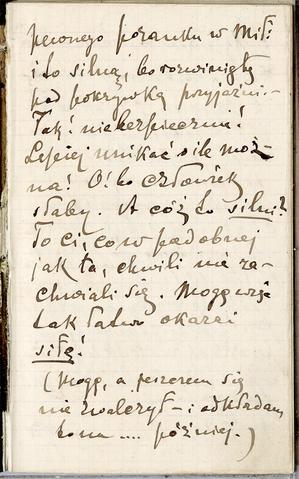 pewnego poranku w Mił:
i to silną, bo rozwinięty
pod pokrywką przyjaźni –
Tak! niebezpiecznie!
Lepiej unikać o ile moż-
na! O! bo człowiek
słaby. A cóż to silni?
To ci, co w podobnej
jak ta, chwili nie za-
chwiali się. Mogę więc
tak łatwo okazać
siłę!
(Mogę, a jeszczem się
nie zwalczył – i odkładam
.... później.)